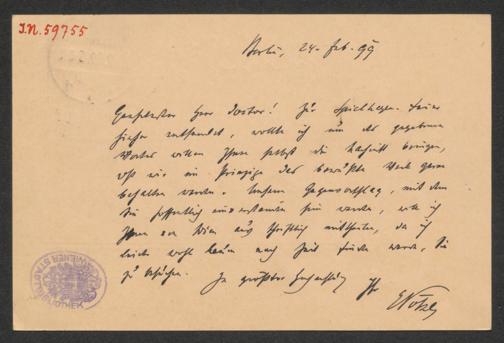 I.N. 59755
Berlin, 24. Feb. 99
Geehrtester Herr Doctor! Zur Spielhagen-Feier
hieher entsendet, wollte ich um der gegebenen
Worte willen Ihnen selbst die Nachricht bringen,
daß wir im Prinzipe das bewußte Werk gerne
behalten werden. Unseren Gegenvorschlag, mit dem
Sie hoffentlich einverstanden sein werden, will ich
Ihnen von Wien aus schriftlich mittheilen, da ich
leider wohl kaum noch Zeit finden werde, Sie
zu besuchen. In größter Hochachtung Ihr
WIENER STADTBIBLIOTHEK